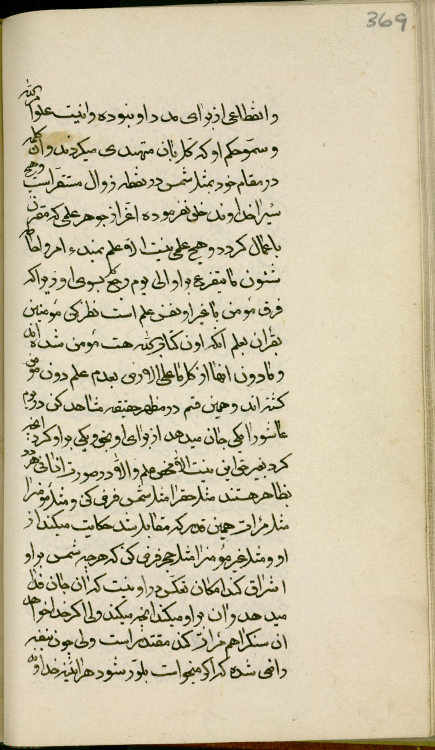 369
و انقطاعی از برای مدد او نبوده و اینست علو
و سمو حکم او که کل بآن متهتدی میگردند و آن
در مقام خود بمثل شمس در نقطه زوال مستقر است
خداوند خلق نفرموده اعز از جوهر علمی که مقترن
باعمال گردد و هیچ علمی نیست الا علم بمن
شئون ما یتفرع بر او الی یوم
فرق مؤمن با غیر او نفس علم است نظر کن مؤمنین
بقرآن بعلم آنکه اون کتاب الله هست مؤمن شده
و مادون آنها از کل ما علی الارض بعدم علم دون مؤمن
گشته اند و همین قسم در مظهر حقیقت مشاهده کن در
عاشورا یکی جان میدهد از برای او و یکی بر او
این نیست الا علم و الا در صورت انسانی هر دو
بظاهر هستند مثل حق را مثل شمس فرض کن و مثل مؤمن را
مثل مرآت همین قدر که مقابل شد حکایت میکند از
او و مثل غیر مؤمن را مثل حجر فرض کن که هر چه شمس بر او
اشراق کند امکان تعکس در او نیست که آن جان فدا
میدهد و این بر او میکند آنچه میکند ولی اگر خدا خواهد
آن سنگ را هم مرآت کند مقتدر است ولی خود بنفسه
راضی شده که اگر میخواست بلور شود هر آینه خداوند